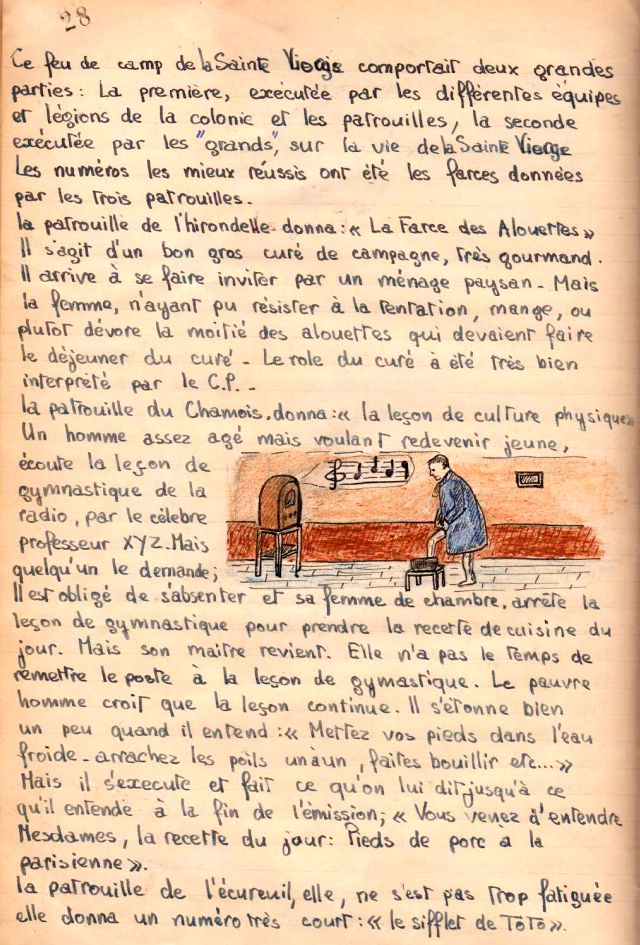 28
Ce feu de camp de la Sainte Vierge comportait deux grandes
parties : La première, exécutée par les différentes équipes
et légions de la colonie et les patrouilles, la seconde
exécutée par les "grands", sur la vie de la Sainte Vierge
Les numéros les mieux réussis ont été les farces données
par les trois patrouilles.
la patrouille de l'hirondelle donna : « La Farce des Alouettes »
Il s'agit d'un bon gros curé de campagne, très gourmand.
Il arrive à se faire inviter par un ménage paysan - Mais
la femme, n'ayant pu résister à la tentation, mange, ou
plutot dévore la moitié des alouettes qui devaient faire
le déjeuner du curé - Le role du curé à été très bien
interprété par le C.P. -
la patrouille du Chamois, donna : « la leçon de culture physique »
Un homme assez agé mais voulant redevenir jeune,
écoute la leçon de
gymnastique de la
radio, par le célèbre
professeur XYZ. Mais
quelqu'un le demande ;
Il est obligé de s'absenter et sa femme de chambre, arrête la
leçon de gymnastique pour prendre la recette de cuisine du
jour. Mais son maitre revient. Elle n'a pas le temps de
remettre le poste à la leçon de gymastique. Le pauvre
homme croit que la leçon continue. Il s'étonne bien
un peu quand il entend : « Mettez vos pieds dans l'eau
froide - arrachez les poils un à un, faites bouillir etc... »
Mais il s'execute et fait ce qu'on lui dit jusqu'à ce
qu'il entende à la fin de l'émission ; « Vous venez d'entendre
Mesdames, la recette du jour : Pieds de porc à la
parisienne ».
la patrouille de l'écureuil, elle, ne s'est pas trop fatiguée
elle donna un numéro très court : « le sifflet de Toto ».